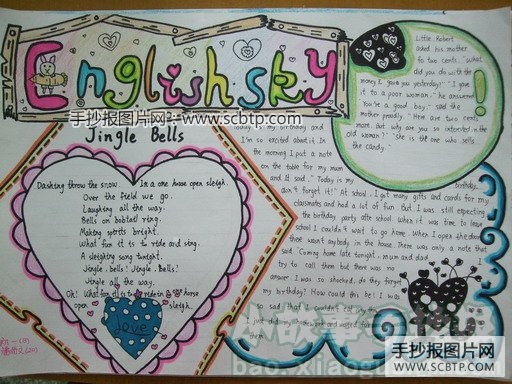 English sky
手抄报图片网:
www.scbtp.com
Jingle Bells
Dashing throw the snow. In a one horse open sleigh.
Over the field we go.
Laughing all the way.
Bells on bobtail ring.
Making spirits bright.
What fun it is to ride and sing.
A sleighing song tonight.
Jingle. bells! Jingle. Bells!
Jingle all the way.
Oh! What fun it is to ride in a one horse
open sleigh.
love
Little Robert
asked his mother
to two cents. "What
did you do with the
money I gave you yesterday?" "I gave
it to a poor woman." he answered.
"You're a good boy." said the
mother proudly. "Here are two cents
more. But why are you so interested in the
old woman?" "She is the one who sells
the candy."
today is my birthday and
I'm so excited about it. In
the morning I put a note
on the table for my mum
and it said." Today is my birthday,
don't forget it!" At school, I got many gifts and cards for my
classmates and had a lot of fun. But I was still expecting
the birthday party after school. When it was time to leave
school I couldn't wait to go home. When I open the door
there wasn't anybody in the house. There was only a note that
said "Coming home late tonight, mum and dad"
try to call them but there was no
answer. I was so shocked. do they forget
my birthday? How could this be! I was
sad
just did my homework and waited for
them
手抄报图片网
www.scbtp.com